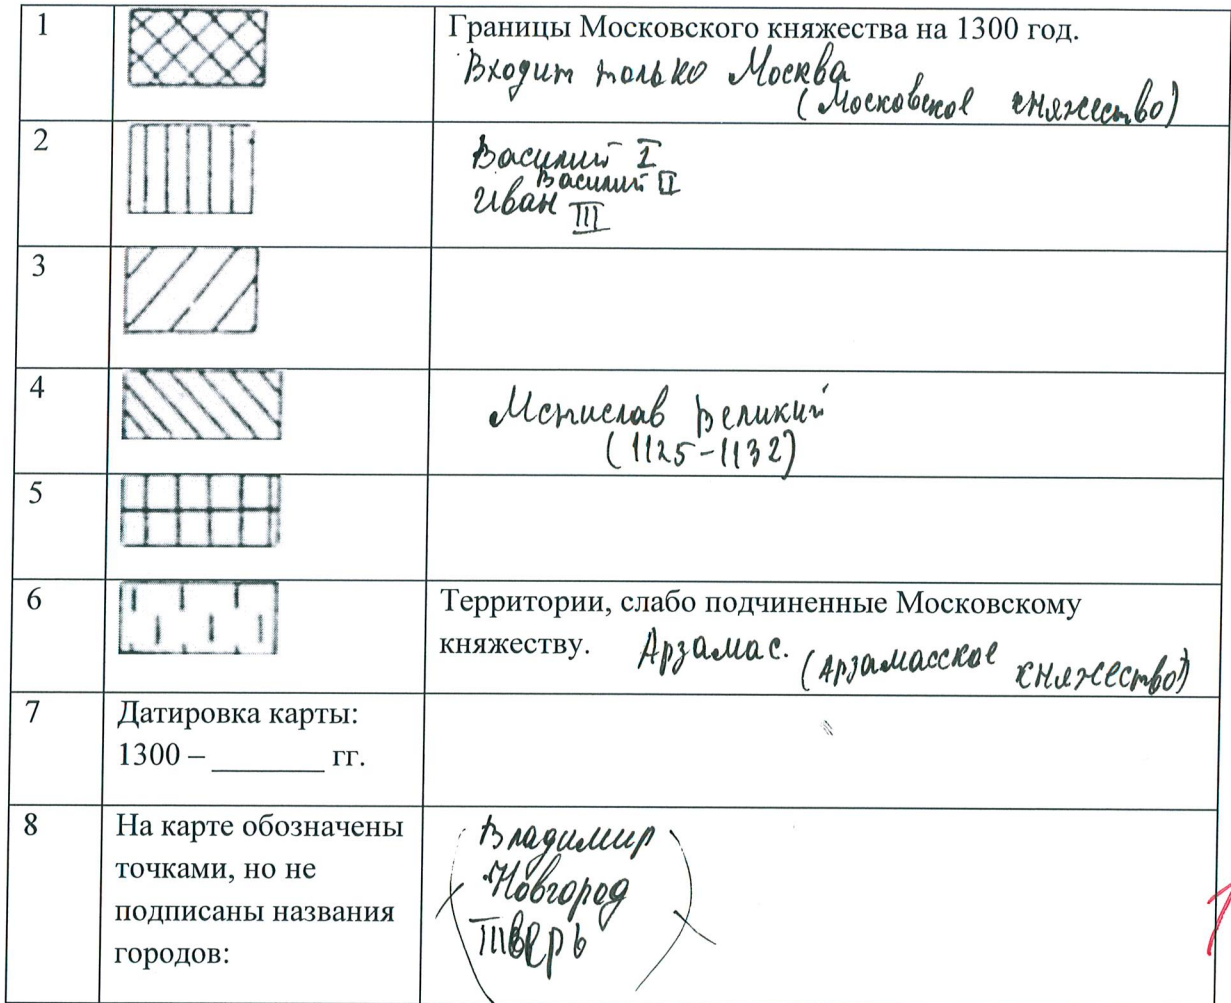 1
Границы Московского княжества на 1300 год.
Входит только Москва
(Московское княжество)
2
Василий I
Василий II
Иван III
3
4
Мстислав Великий
(1125-1132)
5
6
Территории, слабо подчиненные Московскому
княжеству. Арзамас. (Арзамасское княжество)
7
Датировка карты:
1300 – _______ гг.
8
На карте обозначены
точками, но не
подписаны названия
городов:
Владимир
Новгород
Тверь
1